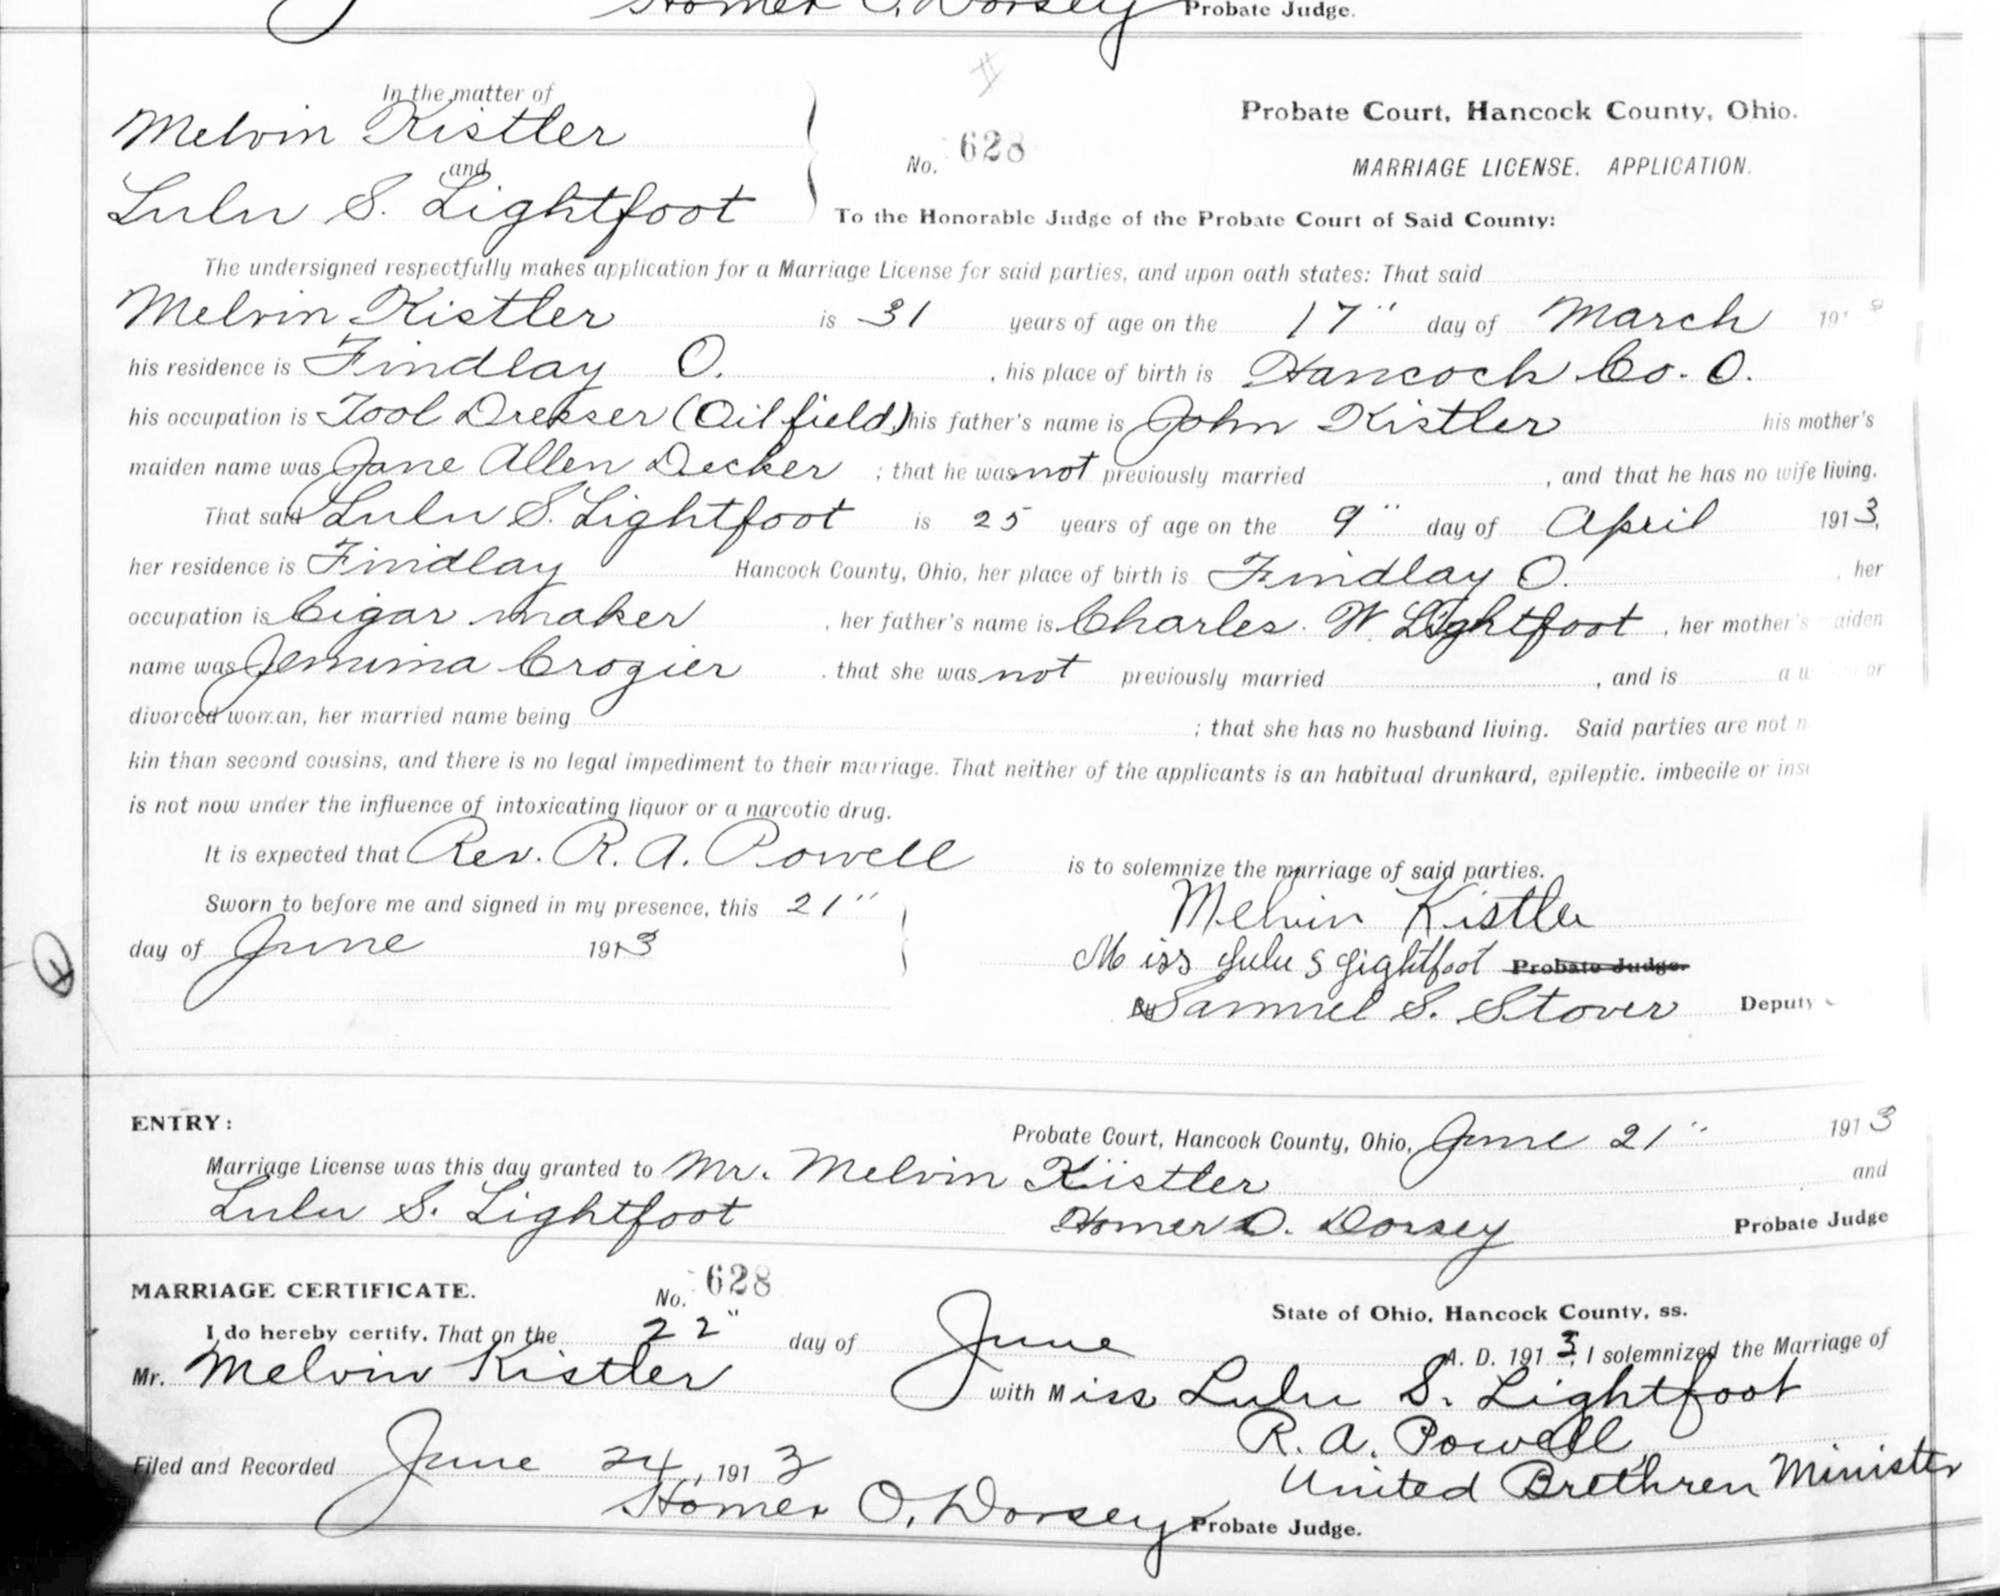 Homer O. Dorsey Probate Judge.
In the matter of
Melvin Kistler
and
Lulu S. Lightfoot
No. 628
Probate Court, Hancock County, Ohio.
MARRIAGE LICENSE. APPLICATION.
To the Honorable Judge of the Probate Court of Said County:
The undersigned respectfully makes application for a Marriage License for said parties, and upon oath states: That said
Melvin Kistler is 31 years of age on the 17" day of March 1913
his residence is Findlay O. , his place of birth is Hancock Co. O.
his occupation is Tool Dresser (Oil field) his father's name is John Kistler his mother's
maiden name was Jane Allen Decker ; that he was not previously married , and that he has no wife living.
That said Lulu S. Lightfoot is 25 years of age on the 9" day of April 1913,
her residence is Findlay Hancock County, Ohio, her place of birth is Findlay O. , her
occupation is Cigar maker , her father's name is Charles. W. Lightfoot , her mother's maiden
name was Jemima Crogier . that she was not previously married , and is a or
divorced woman, her married name being ; that she has no husband living. Said parties are not
kin than second cousins, and there is no legal impediment to their marriage. That neither of the applicants is an habitual drunkard, epileptic. imbecile or
is not now under the influence of intoxicating liquor or a narcotic drug.
It is expected that Rev. R. A. Powell is to solemnize the marriage of said parties.
Sworn to before me and signed in my presence, this 21"
day of June 1913
Melvin Kistler
Miss Lulu S Lightfoot Probate Judge.
By Samuel S. Stover Deputy
ENTRY:
Probate Court, Hancock County, Ohio, June 21" 1913
Marriage License was this day granted to Mr. Melvin Kistler and
Lulu S. Lightfoot Homer O. Dorsey Probate Judge
MARRIAGE CERTIFICATE. No. 628
State of Ohio, Hancock County, ss.
I do hereby certify. That on the 22" day of June A. D. 1913, I solemnized the Marriage of
Mr. Melvin Kistler with Miss Lulu S. Lightfoot
R. A. Powell,
United Brethren Minister
Filed and Recorded June 24, 1913
Homer O. Dorsey Probate Judge.